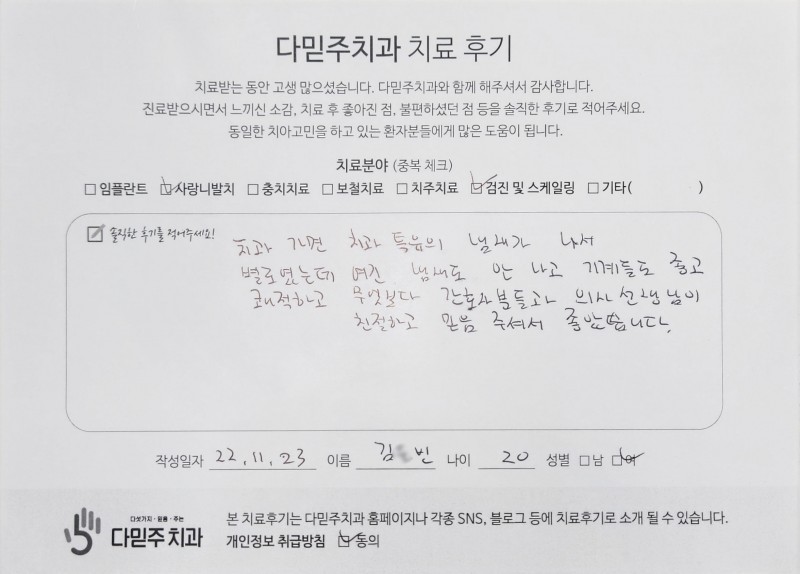 다믿주치과 치료 후기
치료받는 동안 고생 많으셨습니다. 다믿주치과와 함께 해주셔서 감사합니다.
진료받으시면서 느끼신 소감, 치료 후 좋아진 점, 불편하셨던 점 등을 솔직한 후기로 적어주세요.
동일한 치아고민을 하고 있는 환자분들에게 많은 도움이 됩니다.
치료분야 (중복 체크)
□ 임플란트 ☑ 사랑니발치 □ 충치치료 □ 보철치료 □ 치주치료 ☑ 검진 및 스케일링 □ 기타( )
솔직한 후기를 적어주세요!
치과 가면 치과 특유의 냄새가 나서
별로였는데 여긴 냄새도 안 나고 기계들도 좋고
쾌적하고 무엇보다 간호사분들과 의사선생님이
친절하고 믿음 주셔서 좋았습니다.
작성일자 22.11.23 이름 김 빈 나이 20 성별 □남 ☑여
다섯가지·믿음·주는
다믿주치과
본 치료후기는 다믿주치과 홈페이지나 각종 SNS, 블로그 등에 치료후기로 소개 될 수 있습니다.
개인정보 취급방침 ☑ 동의